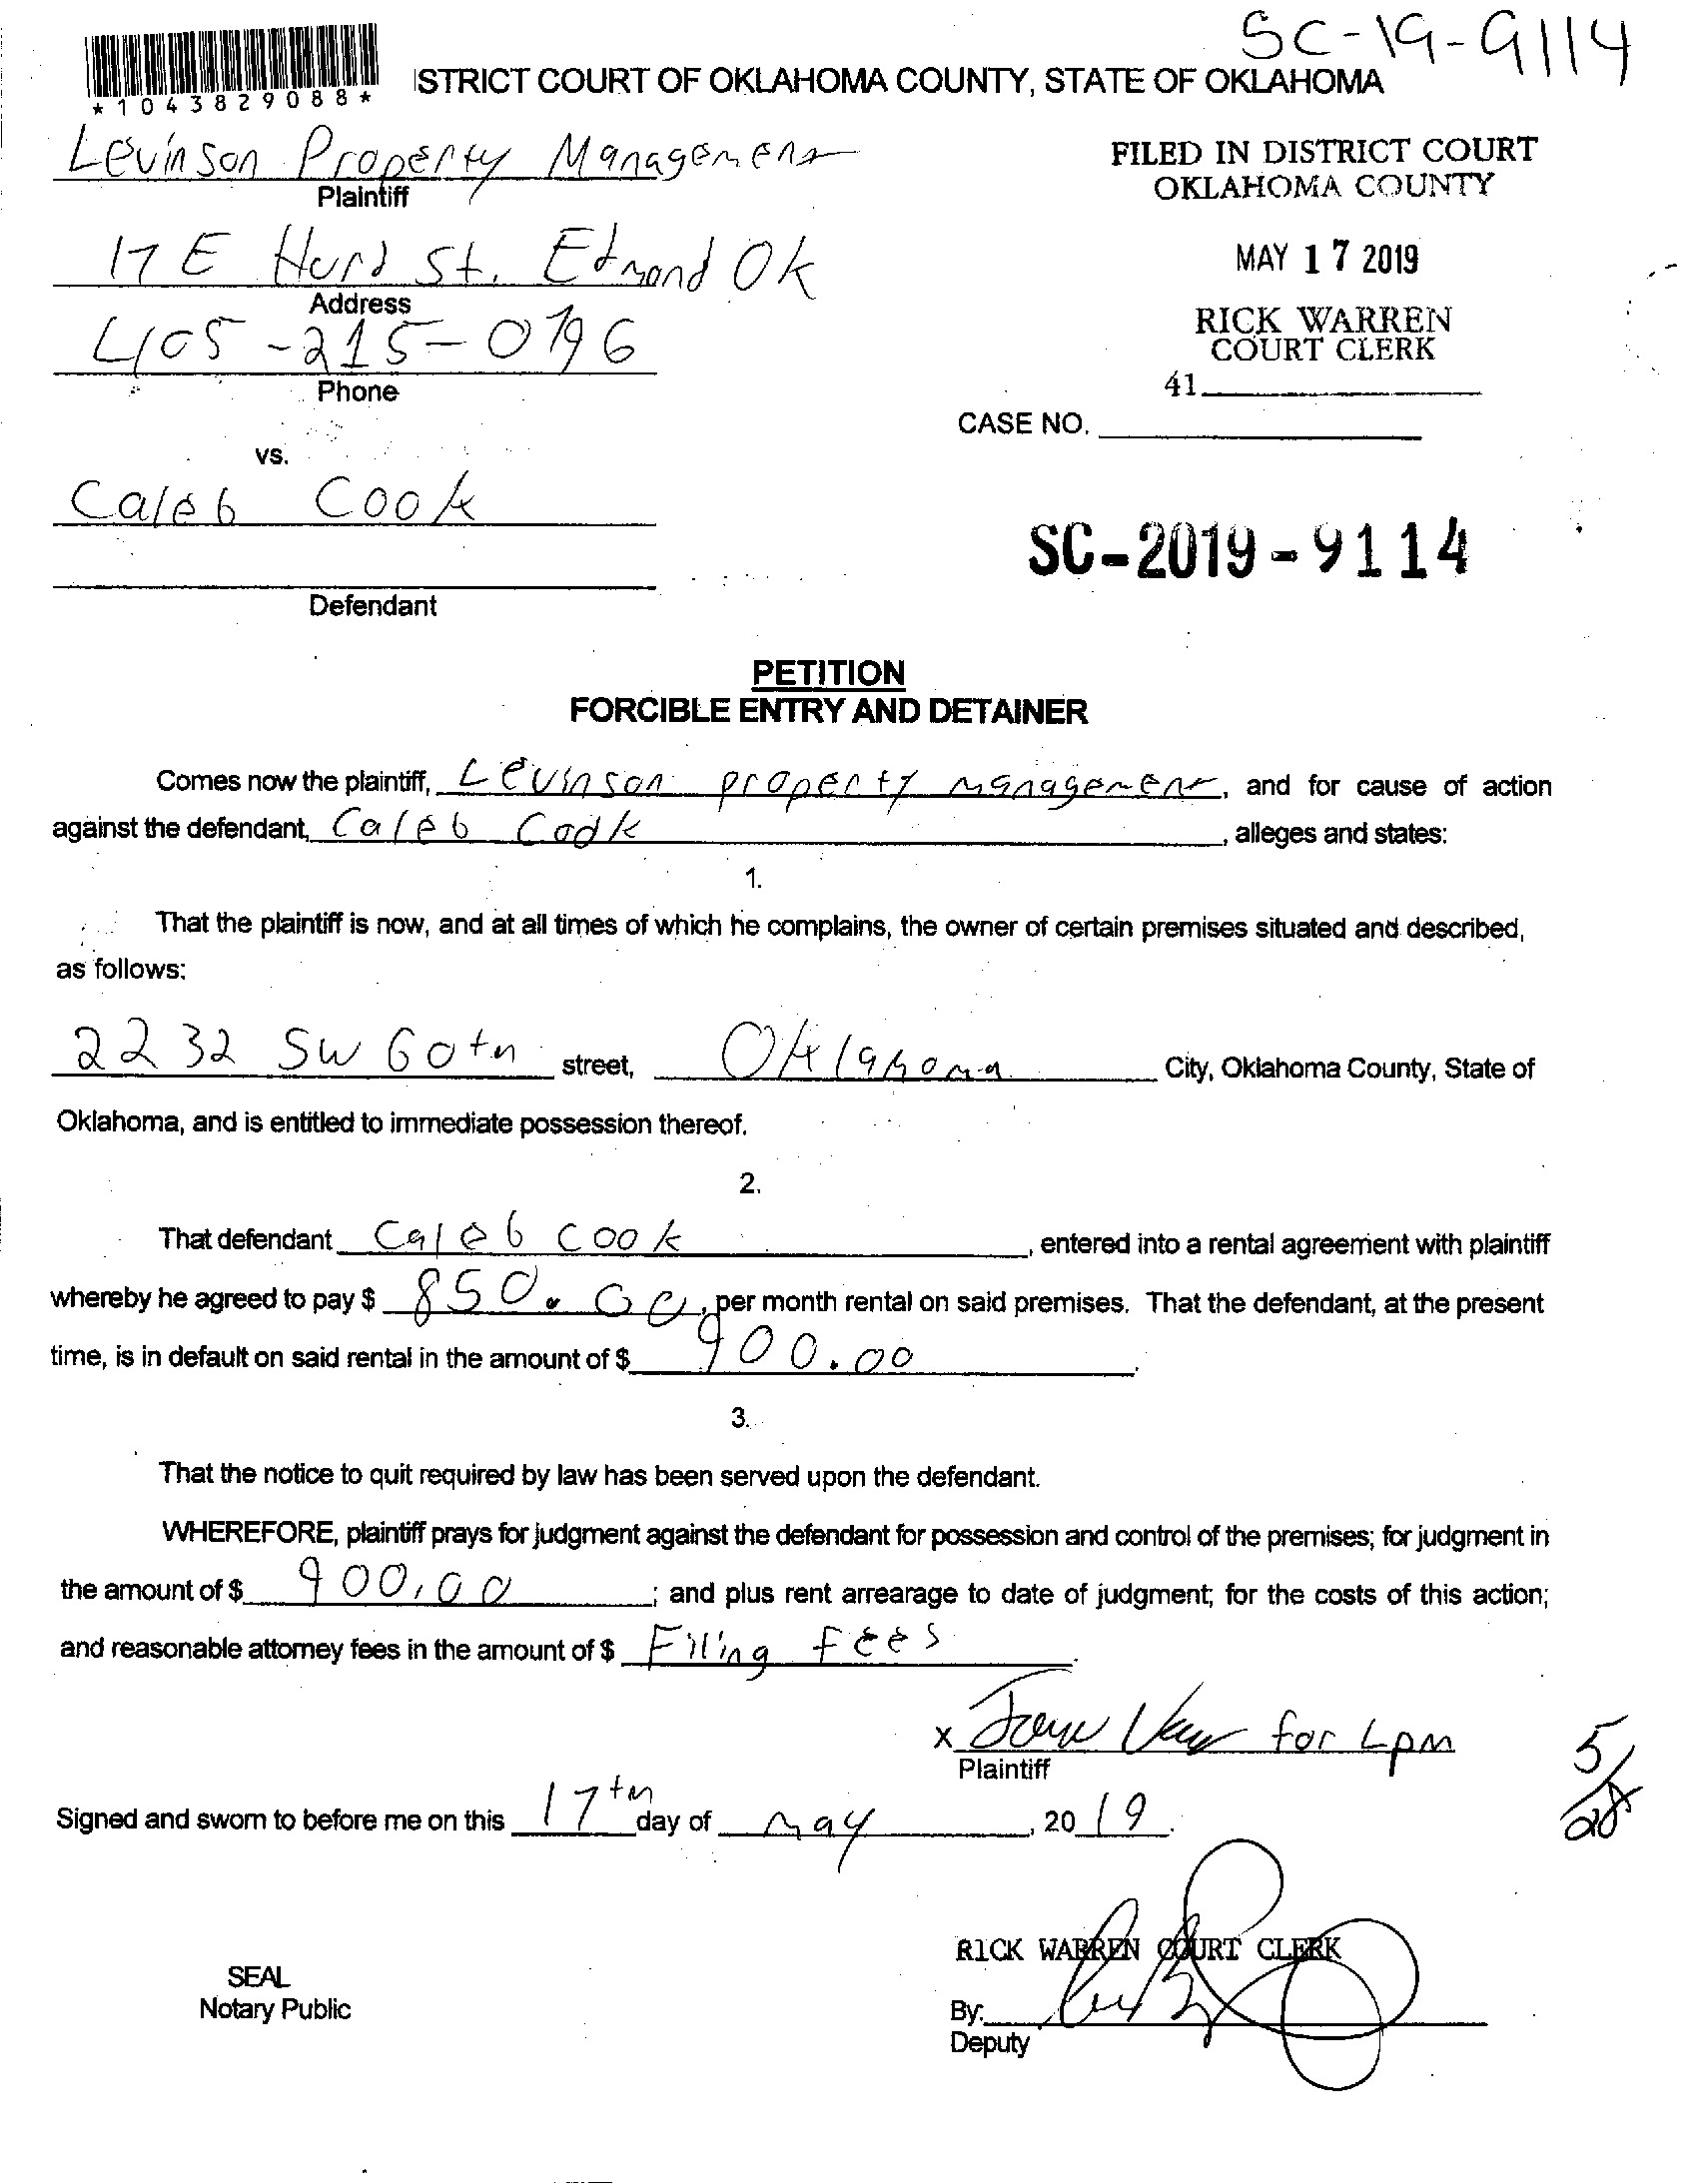 SC-19-9114
*1043829088*
ISTRICT COURT OF OKLAHOMA COUNTY, STATE OF OKLAHOMA
Levinson Property Management
Plaintiff
FILED IN DISTRICT COURT
OKLAHOMA COUNTY
17 E Hurd St. Edmond OK
Address
MAY 17 2019
405-215-0796
Phone
RICK WARREN
COURT CLERK
41
CASE NO.
vs.
Caleb Cook
SC-2019-9114
Defendant
PETITION
FORCIBLE ENTRY AND DETAINER
Comes now the plaintiff, Levinson property management, and for cause of action
against the defendant, Caleb Cook, alleges and states:
1.
That the plaintiff is now, and at all times of which he complains, the owner of certain premises situated and described,
as follows:
2232 SW 60th street, Oklahoma City, Oklahoma County, State of
Oklahoma, and is entitled to immediate possession thereof.
2.
That defendant Caleb Cook, entered into a rental agreement with plaintiff
whereby he agreed to pay $ 850.00, per month rental on said premises. That the defendant, at the present
time, is in default on said rental in the amount of $ 900.00.
3.
That the notice to quit required by law has been served upon the defendant.
WHEREFORE, plaintiff prays for judgment against the defendant for possession and control of the premises; for judgment in
the amount of $ 900.00; and plus rent arrearage to date of judgment; for the costs of this action;
and reasonable attorney fees in the amount of $ Filing fees.
x for LPM
Plaintiff
5/28
Signed and sworn to before me on this 17th day of may, 2019.
RICK WARREN COURT CLERK
SEAL
Notary Public
By:
Deputy